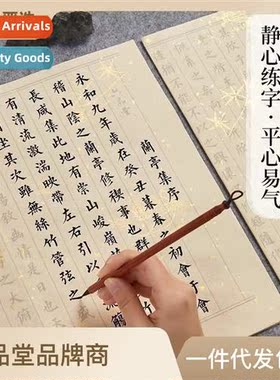 Arrivals
ty Goods
静心练字·平心易气
永和九年歲在癸丑暮春之初會于會
稽山陰之蘭亭修禊事也群
長咸集此地有崇山峻嶺
有清流激湍映帶左右引以
坐其次雖無絲竹管弦之
品堂品牌商
一件代发